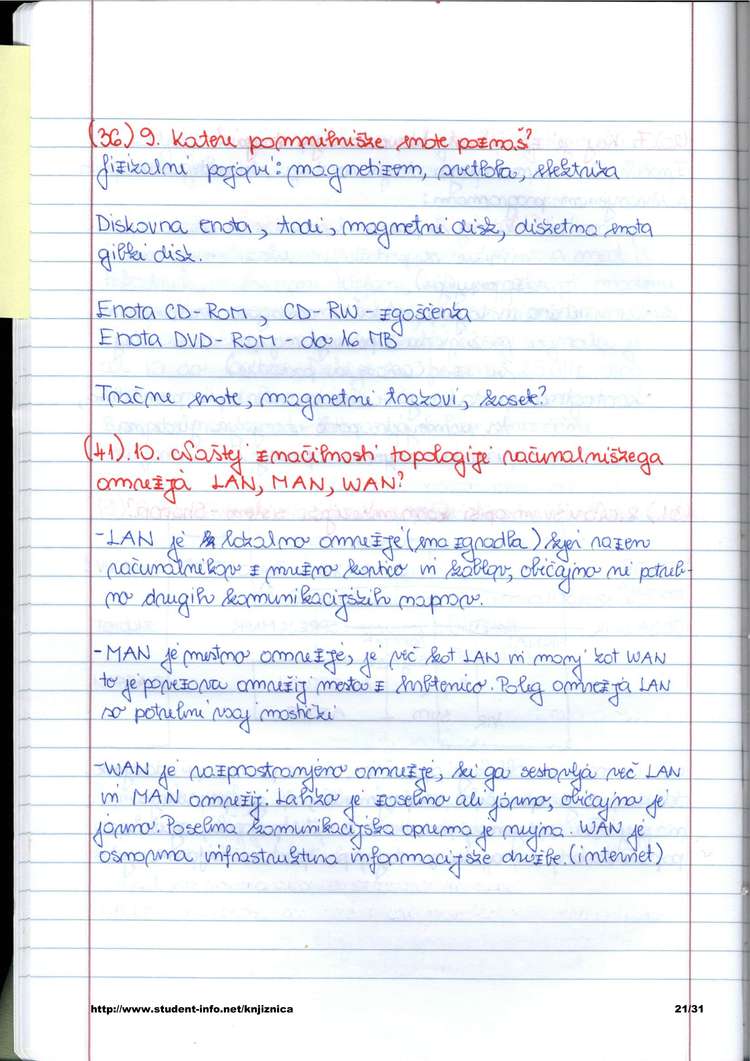 (36.) 9. Katere pomnilniške enote poznaš?
fizikalni pojavi: magnetizem, svetloba, elektrika
Diskovna enota, trdi, magnetni disk, disketna enota
gibki disk.
Enota CD-ROM, CD-RW - zgoščenka
Enota DVD-ROM - do 16 MB
Tračne enote, magnetni trakovi, kosek?
(41). 10. Naštej značilnosti topologije računalniškega
omrežja LAN, MAN, WAN?
-LAN je lokalno omrežje (ena zgradba) kjer razen
računalnikov z mrežno kartico in kablov, običajno ni potreb-
no drugih komunikacijskih naprav.
-MAN je mestno omrežje, je več kot LAN in manj kot WAN
to je povezava omrežij mesta z hrbtenico. Poleg omrežja LAN
so potrebni vsaj mostički
-WAN je razprostranjeno omrežje, ki ga sestavlja več LAN
in MAN omrežij. Lahko je zasebno ali javno, običajno je
javno. Posebna komunikacijska oprema je nujna. WAN je
osnovna infrastruktura informacijske družbe. (internet)
http://www.student-info.net/knjiznica
21/31